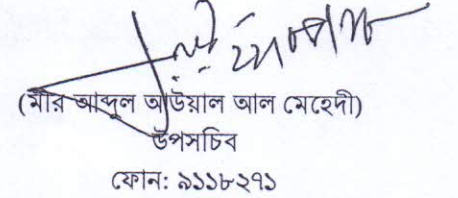 (মীর আব্দুল আউয়াল আল মেহেদী)
উপসচিব
ফোন: ৯১১৮২৭১